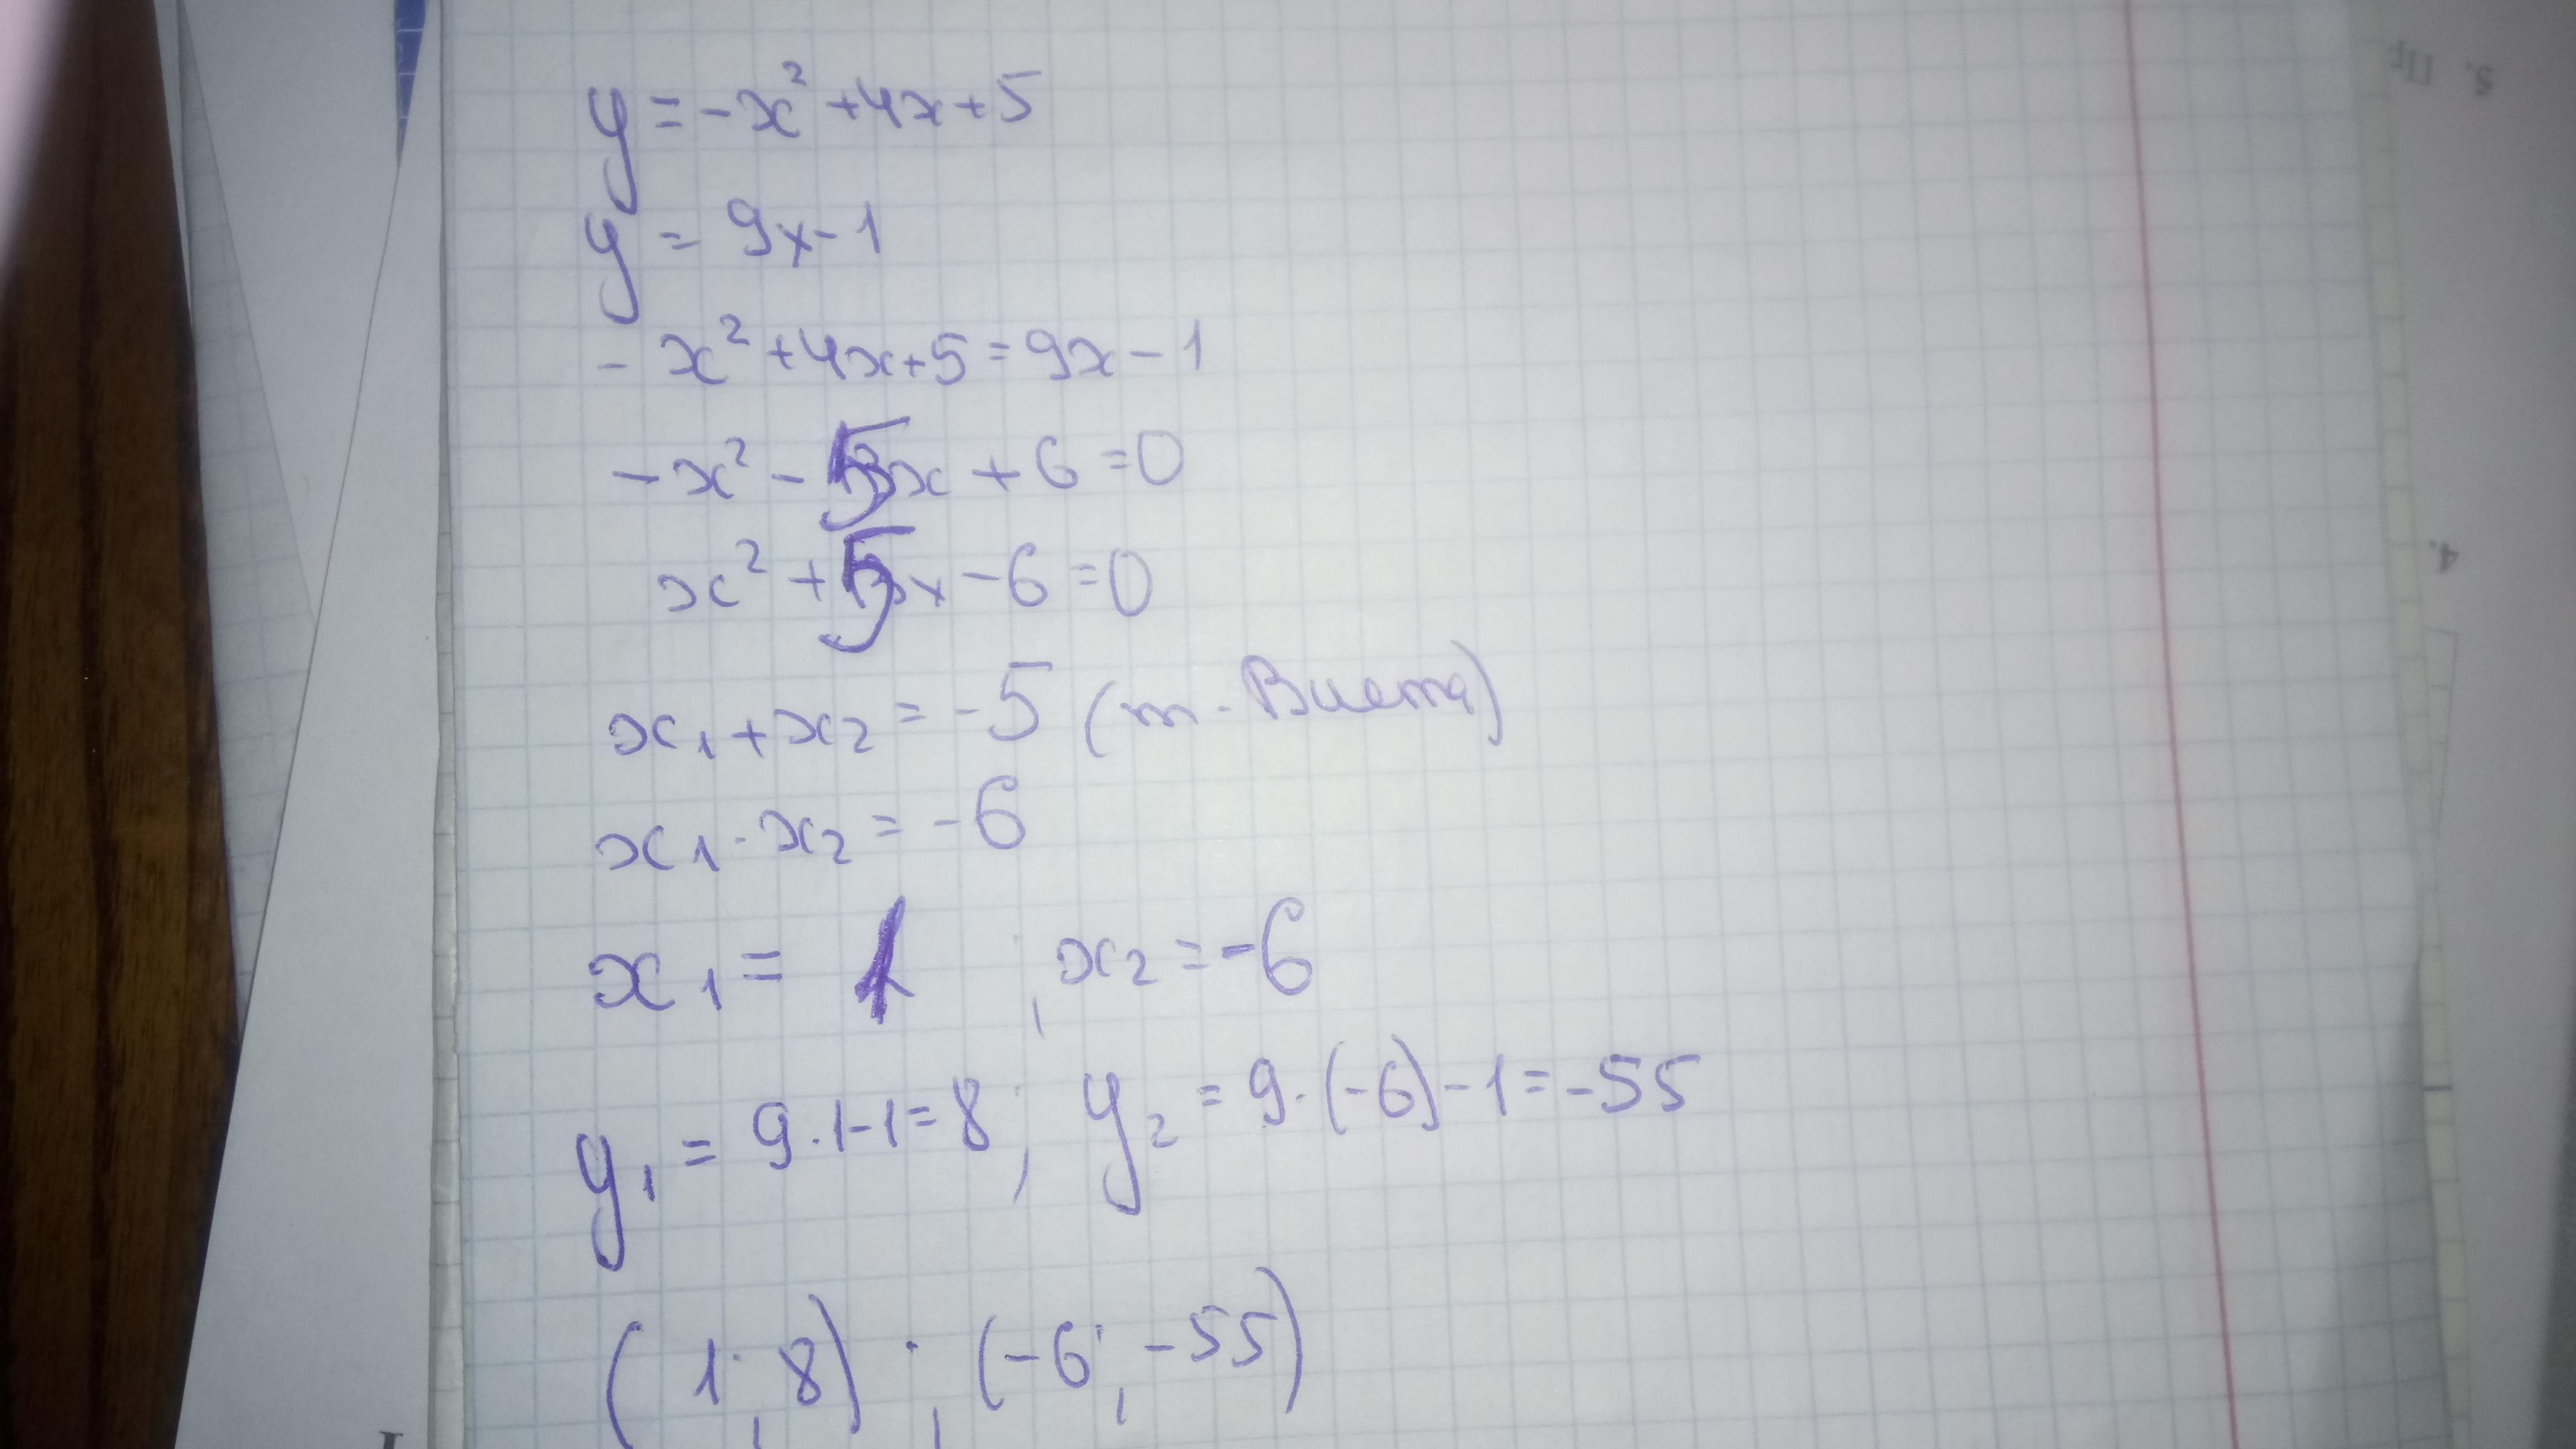 y = -x² + 4x + 5
y = 9x - 1
- x² + 4x + 5 = 9x - 1
- x² - 5x + 6 = 0
x² + 5x - 6 = 0
x₁ + x₂ = -5 (т. Виета)
x₁ · x₂ = -6
x₁ = 1 ; x₂ = -6
y₁ = 9 · 1 - 1 = 8 ; y₂ = 9 · (-6) - 1 = -55
(1 ; 8) ; (-6 ; -55)
5. Пр
4.